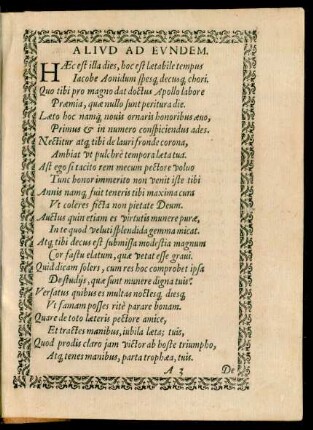 ALIVD AD EVNDEM.
HÆc est illa dies, hoc est lætabile tempus
Iacobe Aonidum spesq, decusq, chori.
Quo tibi pro magno dat doctus Apollo labore
Præmia, quæ nullo sunt peritura die.
Læto hoc namq, novis ornaris honoribus anno,
Primus & in numero conspiciendus ades.
Nectitur atq, tibi de lauri fronde corona,
Ambiat vt pulchrè tempora læta tua.
Ast ego si tacito rem mecum pectore volvo
Tunc honor immerito non venit iste tibi
Annis namq, fuit teneris tibi maxima cura
Vt coleres ficta non pietate Deum.
Auctus quin etiam es virtutis munere puræ,
In te quod veluti splendida gemma micat.
Atq, tibi decus est submissa modestia magnum
Cor fastu elatum, quæ vetat esse gravi.
Quid dicam solers, cum res hoc comprobet ipsa
De studijs, quæ sunt munere digna tuis?
Versatus quibus es multas noctesq, diesq,
Vt famam posses ritè parare bonam.
Quare de toto læteris pectore amice,
Et tractes manibus, iubila læta; tuis,
Quod prodis claro jam victor ab hoste triumpho,
Atq, tenes manibus, parta trophæa, tuis.
A 3 De